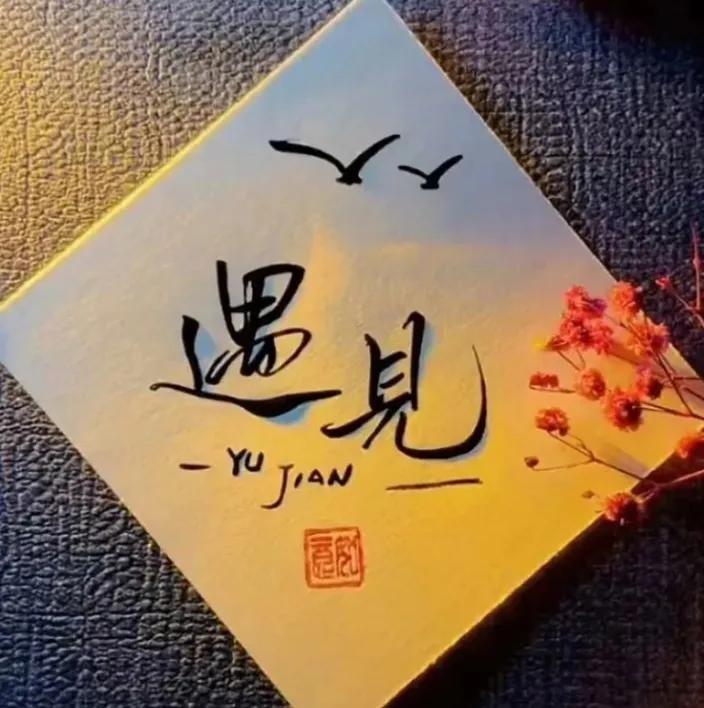 遇見
- YU JIAN —